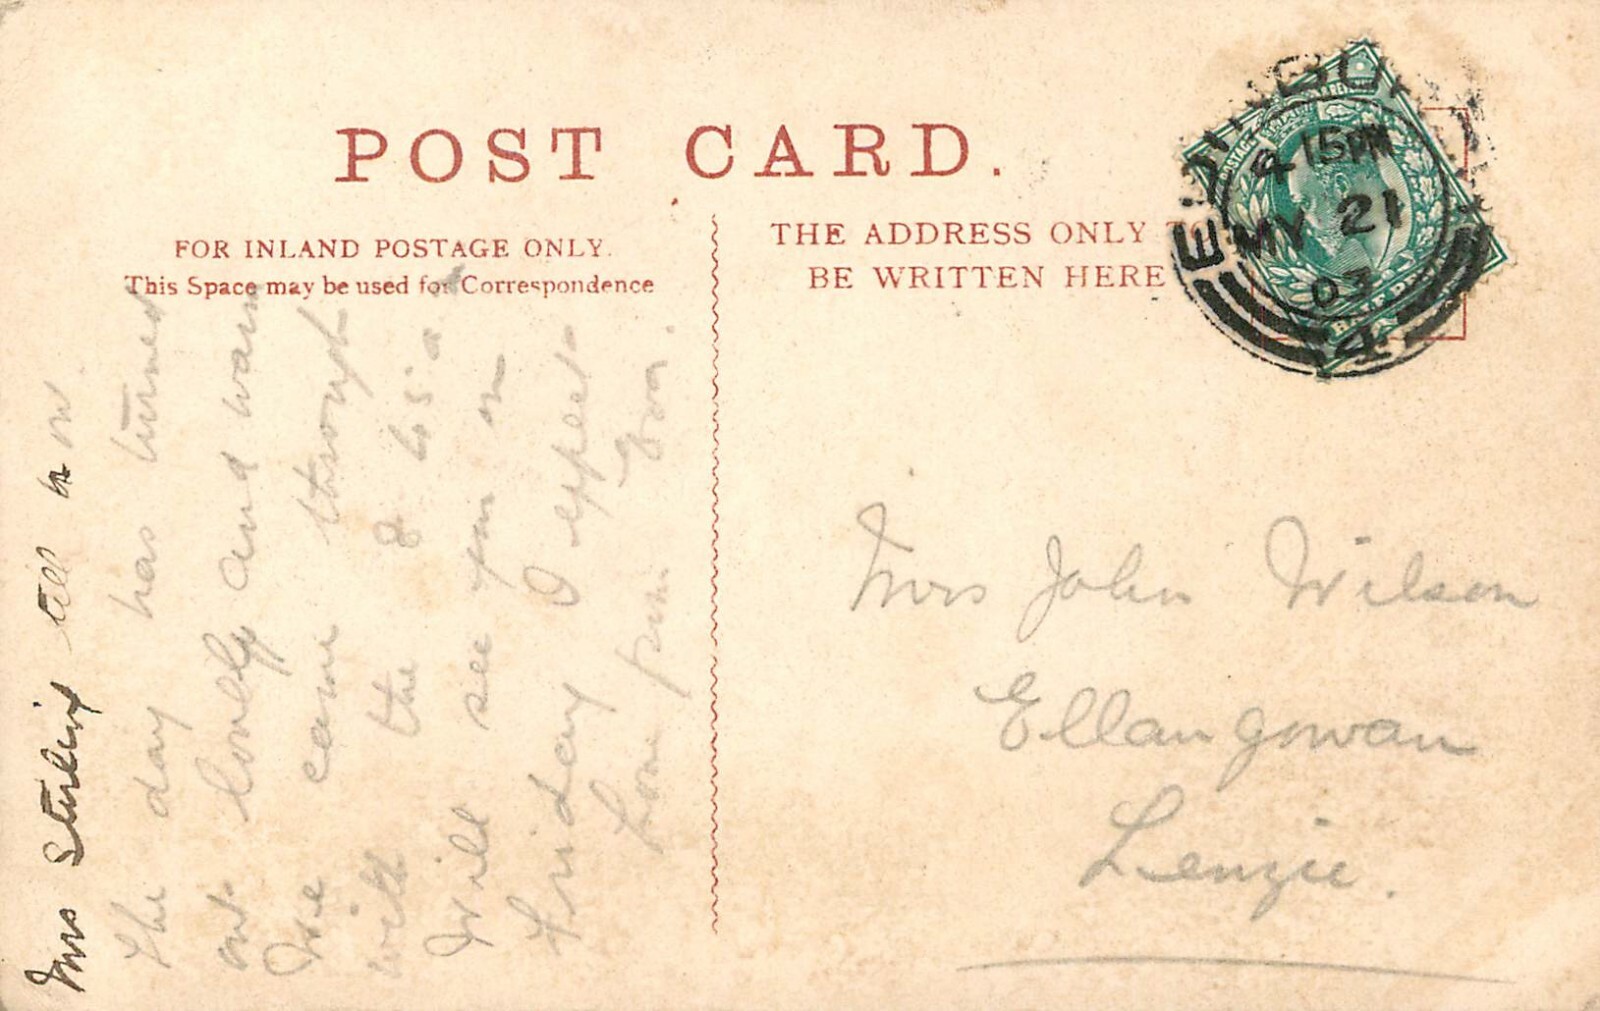 POST CARD.
FOR INLAND POSTAGE ONLY.
This Space may be used for Correspondence
THE ADDRESS ONLY TO
BE WRITTEN HERE
4 15PM
MY 21
03
4
Mrs John Wilson
Ellangowan
Lenzie.
Mrs Sterling till
The day has turned
out lovely and warm
We came through
with the
Will see you on
Friday I expect
Love from